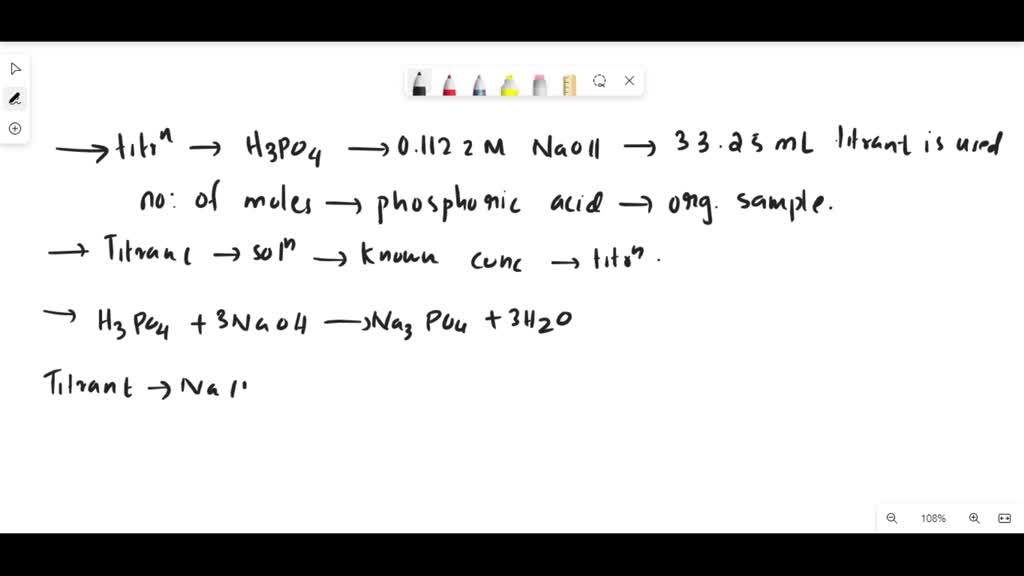 → titrⁿ → H3PO4 → 0.1122M NaOH → 33.25 mL titrant is used
no: of moles → phosphoric acid → org. sample.
→ Titrant → solⁿ → known conc → titrⁿ.
→ H3PO4 + 3NaOH → Na3PO4 + 3H2O
Titrant → Na
108%